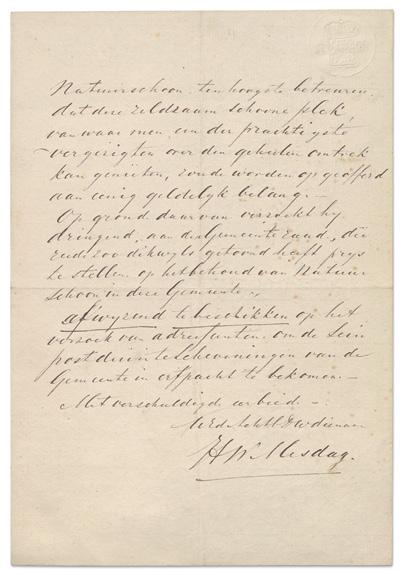 Natuurschoon ten hoogste betreuren,
dat deze zeldzaam schoone plek,
van waar men een der prachtigste
vergezigten over den geheelen omtrek
kan genieten, zoude worden opgeofferd
aan eenig geldelyk belang.
Op grond daarvan verzoekt hy
dringend, aan de Gemeenteraad, die
reeds zoo dikwyls getoond heeft prys
te stellen op het behoud van Natuur
schoon in deze Gemeente,
afwyzend te beschikken op het
verzoek van adressanten om de Sein
postduin te Scheveningen van de
Gemeente in erfpacht te bekomen.—
Met verschuldigde eerbied —
UEd. Achtb. dw dienaar
H W Mesdag.